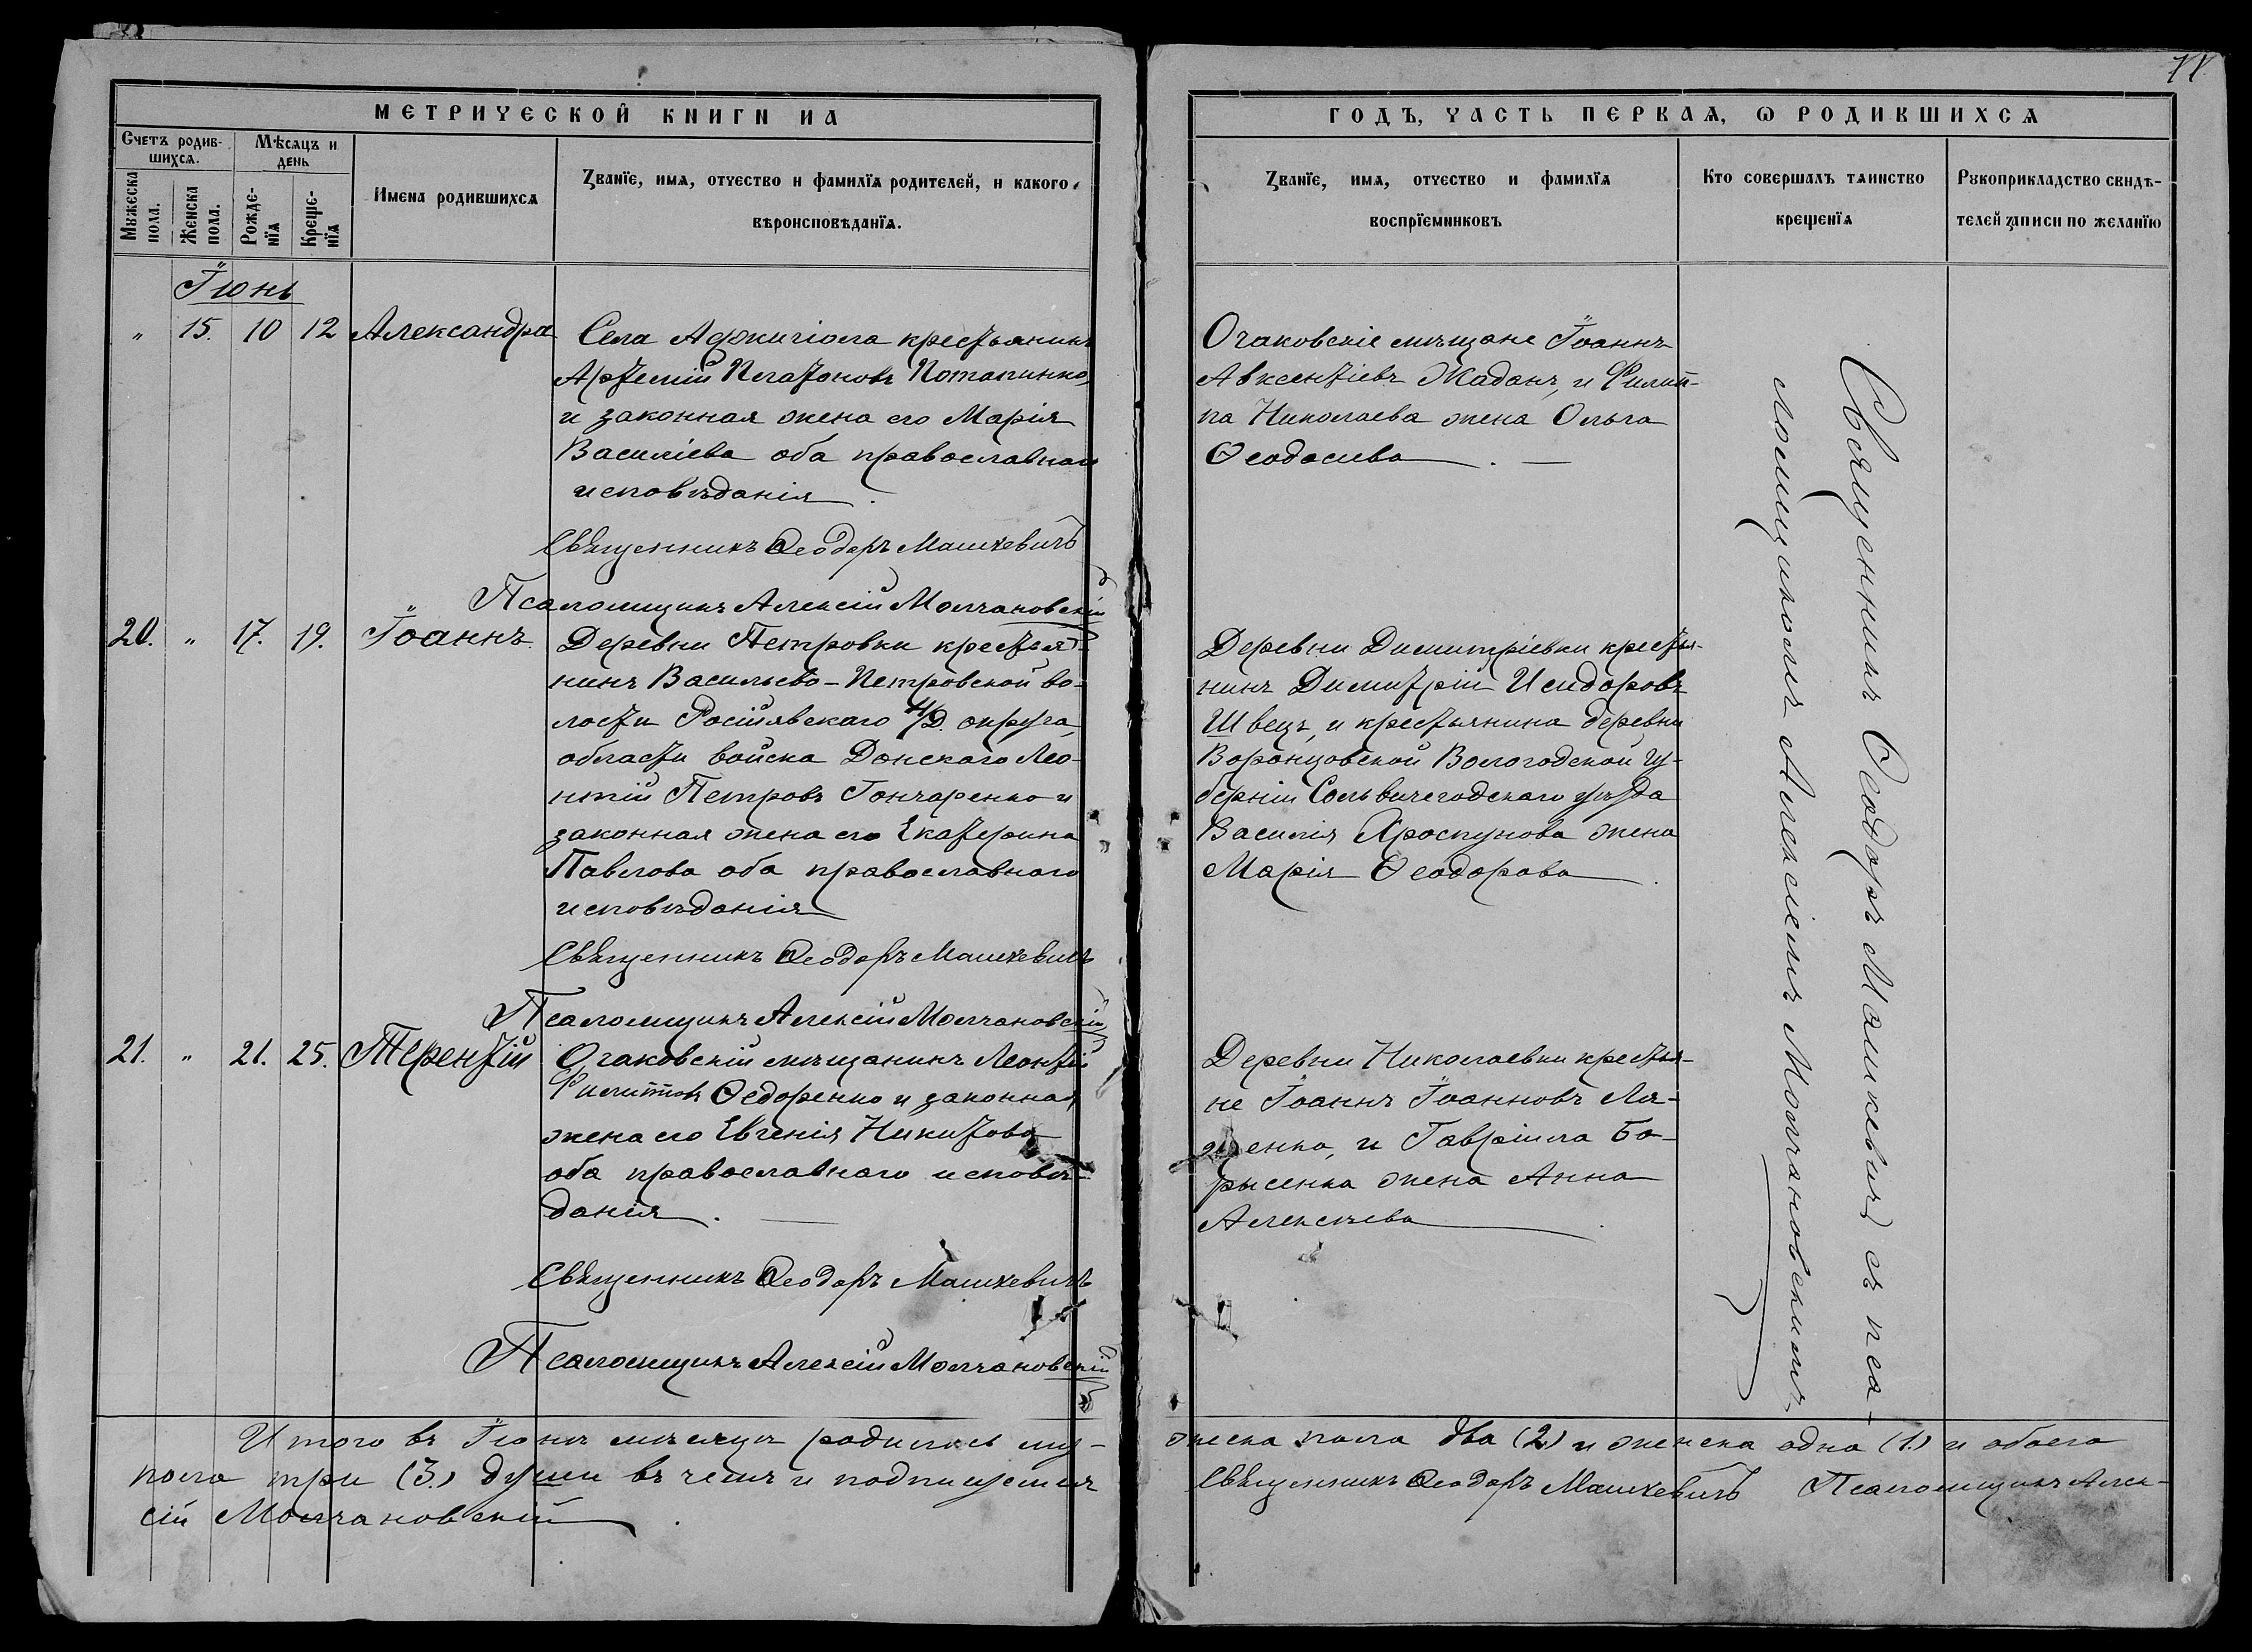 МЕТРИЧЕСКОЙ КНИГИ НА
Счетъ родив-
шихся.
Мѣсяцъ и
день
Мужеска
пола.
Женска
пола.
Рожде-
нїя
Креще-
нїя
Имена родившихся
Званїе, имя, отчество и фамилїя родителей, и какого
вѣроисповѣданїя.
Іюнь
" 15. 10 12 Александра
Села Аджигіола крестьянинъ
Артемій Платоновъ Потапенко,
и законная жена его Марія
Василіева оба православнаго
исповѣданія.
Священникъ Ѳеодоръ Машкевичъ
Псаломщикъ Алексій Молчановскій
20. " 17. 19. Іоаннъ
Деревни Петровки крестья-
нинъ Васильево-Петровской во-
лости Н/Д. округа,
области войска Донскаго Лео-
нтій Петровъ Гончаренко и
законная жена его Екатерина
Павлова оба православнаго
исповѣданія
Священникъ Ѳеодоръ Машкевичъ
Псаломщикъ Алексій Молчановскій
21. " 21. 25. Терентій
Очаковскій мѣщанинъ Леонтій
Филипповъ Ѳедоренко и законная
жена его Евгенія Никитова
оба православнаго исповѣ-
данія.
Священникъ Ѳеодоръ Машкевичъ
Псаломщикъ Алексій Молчановскій
Итого въ Іюнѣ мѣсяцѣ родилось му-
пола три (3.) души въ чемъ и подписуемся
сій Молчановскій.
ГОДЪ, ЧАСТЬ ПЕРВАЯ, Ѡ РОДИВШИХСЯ
Званїе, имя, отчество и фамилїя
воспрїемниковъ
Кто совершалъ таинство
крещенїя
Рукоприкладство свидѣ-
телей записи по желанїю
Очаковскіе мѣщане Іоаннъ
Авксентіевъ Жаданъ, и Филип-
па Николаева жена Ольга
Ѳеодосиева.
Деревни Димитріевки крестья-
нинъ Димитрій Исидоровъ
Швецъ, и крестьянина деревни
Воронцовской Вологодской гу-
берніи Сольвычегодскаго уѣзда
Василія жена
Марія Ѳеодорова.
Деревни Николаевки крестья-
не Іоаннъ Іоанновъ Ля-
шенко, и Гавріила Бо-
рысенка жена Анна
Алексѣева.
Священникъ Ѳеодоръ Машкевичъ съ пса-
ломщикомъ Алексіемъ Молчановскимъ.
жеска пола два (2) и женска одна (1.) и обоего
Священникъ Ѳеодоръ Машкевичъ Псаломщикъ Алек-